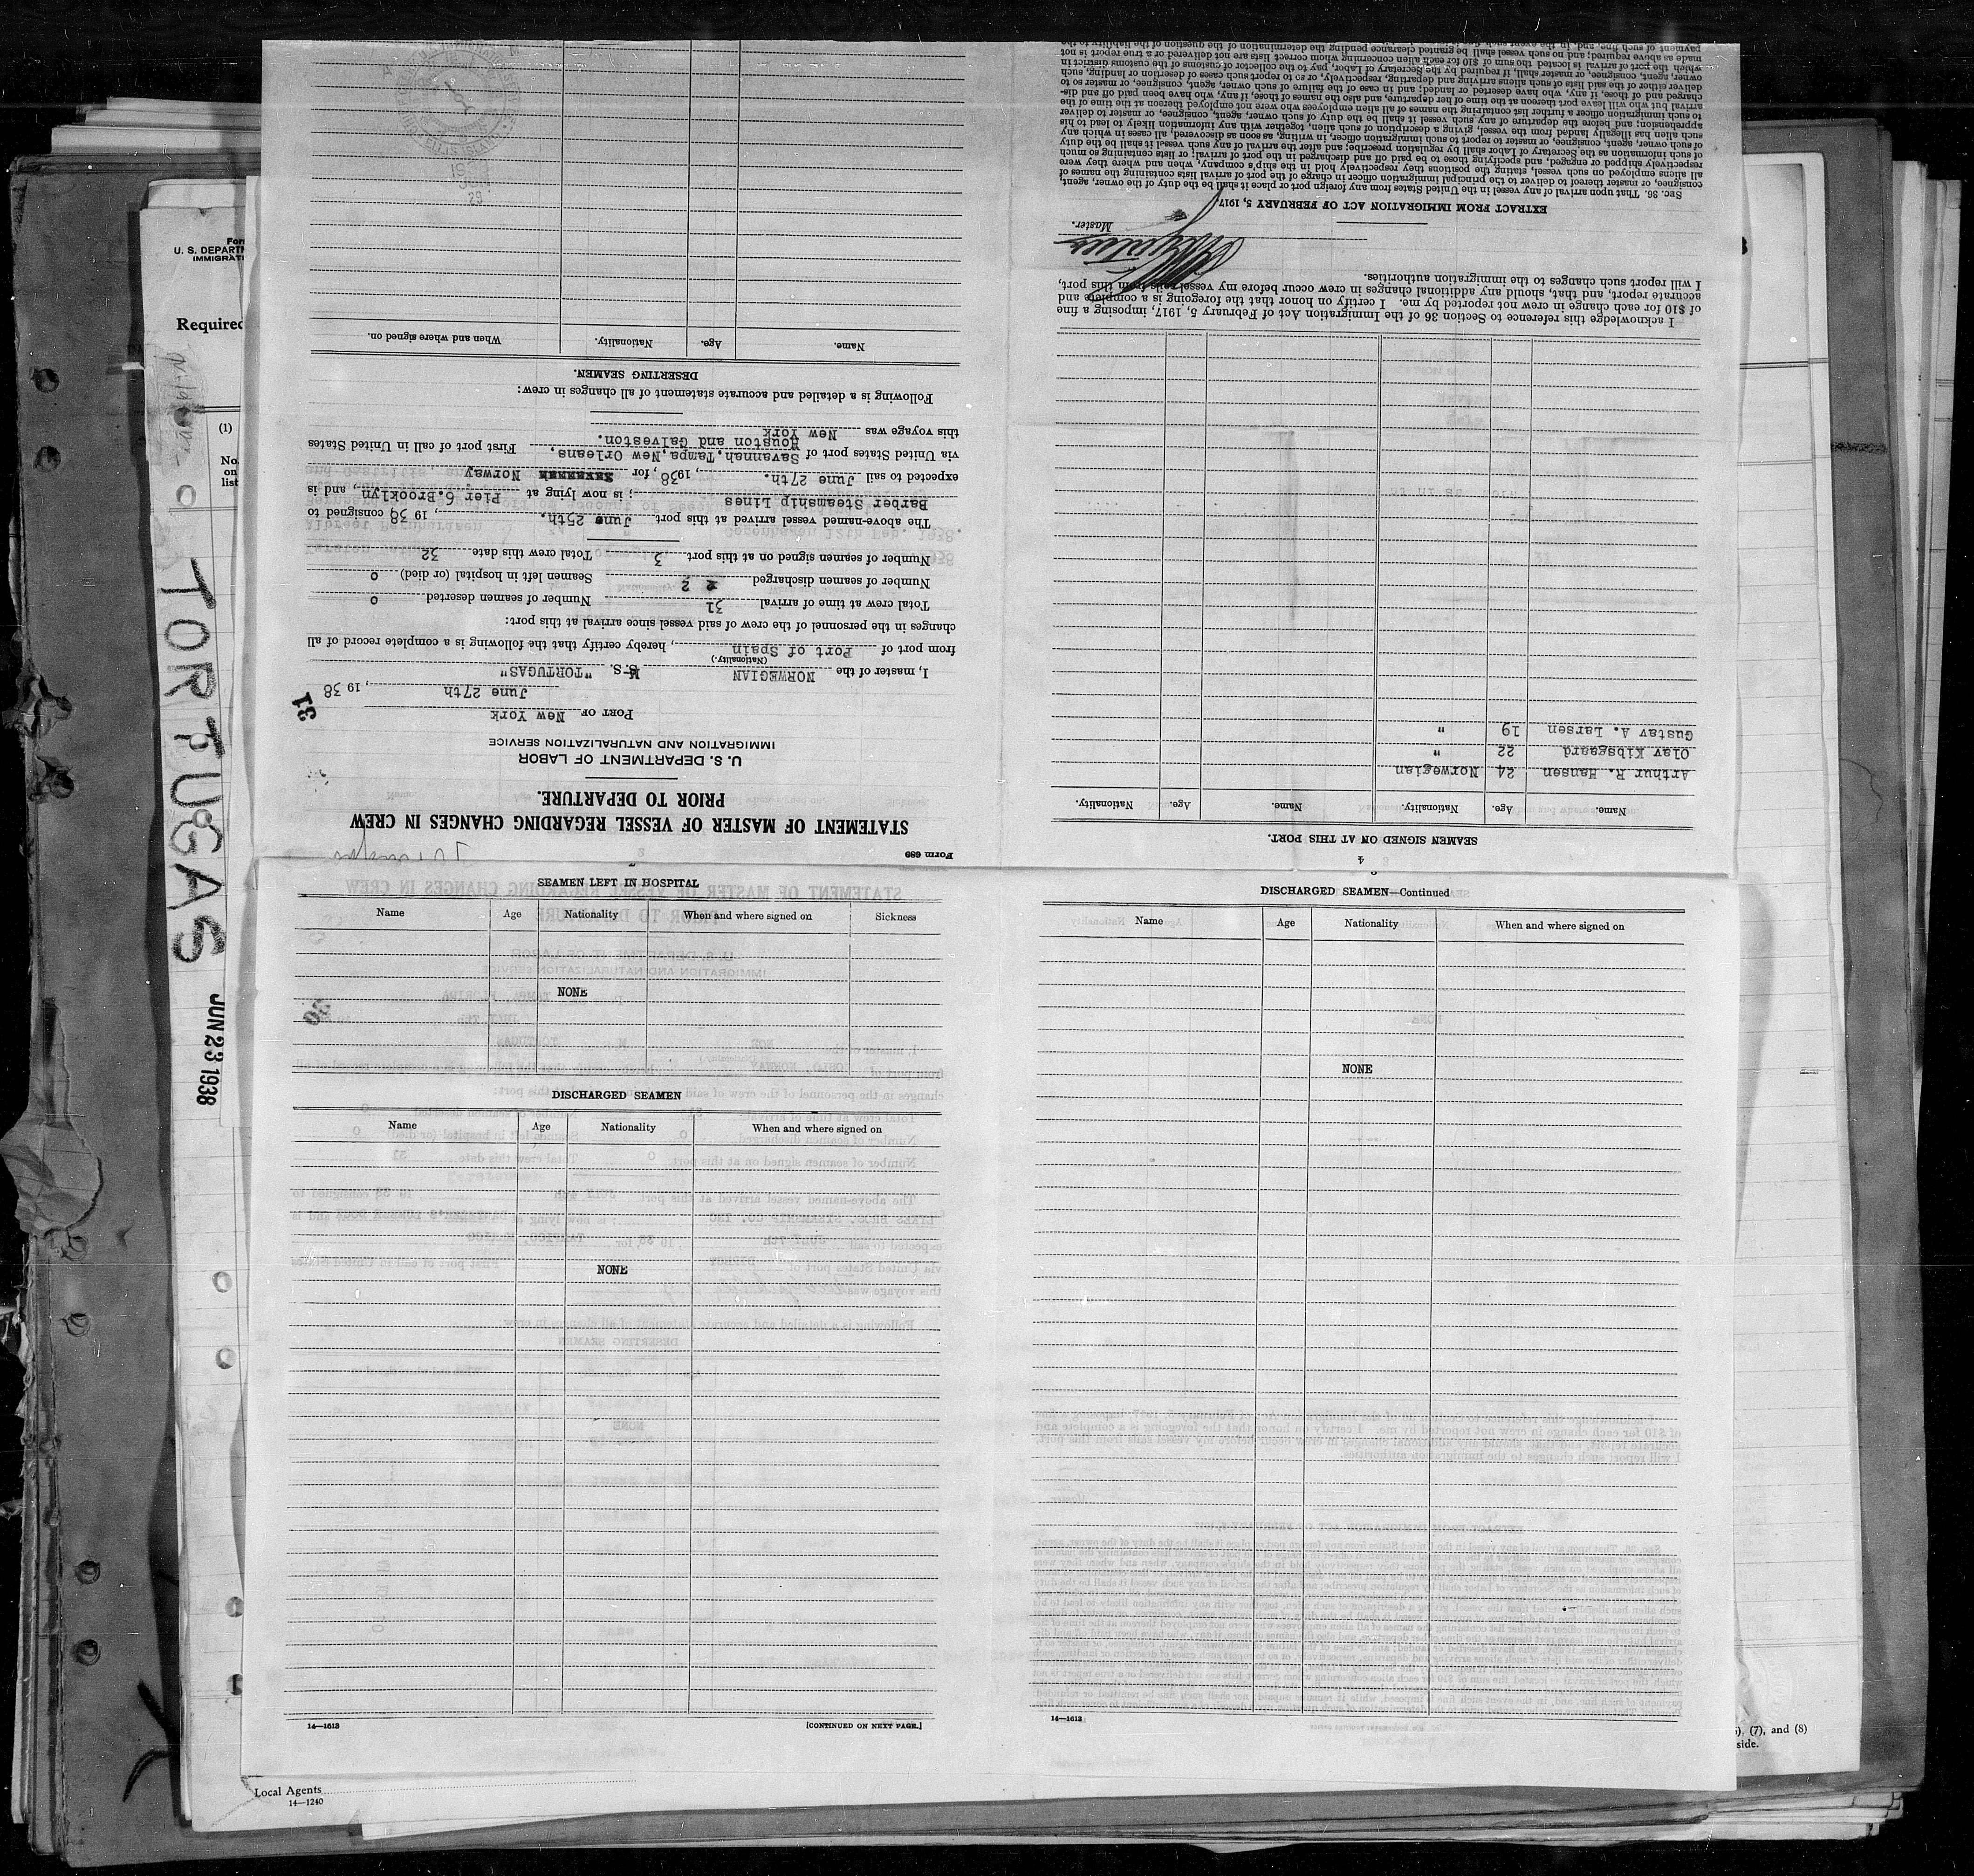 For
U. S. DEPARTM
IMMIGRATI
Required
(1)
No.
on
list
TORTUGAS
JUN 23 1938
Form 689
STATEMENT OF MASTER OF VESSEL REGARDING CHANGES IN CREW
PRIOR TO DEPARTURE.
U. S. DEPARTMENT OF LABOR
IMMIGRATION AND NATURALIZATION SERVICE
31
PORT OF New York
June 27th, 1938
I, master of the NORWEGIAN M.S. "TORTUGAS"
(Nationality.)
from port of Port of Spain, hereby certify that the following is a complete record of all
changes in the personnel of the crew of said vessel since arrival at this port:
Total crew at time of arrival 31 Number of seamen deserted 0
Number of seamen discharged 2 Seamen left in hospital (or died) 0
Number of seamen signed on at this port 3 Total crew this date 32
The above-named vessel arrived at this port June 25th, 1938 consigned to
Barber Steamship Lines; is now lying at Pier 6.Brooklyn, and is
expected to sail June 27th., 1938, for Norway
via United States port of Savannah,Tampa,New Orleans,
Houston and Galveston. First port of call in United States
this voyage was New York
Following is a detailed and accurate statement of all changes in crew:
DESERTING SEAMEN.
Name. Age. Nationality. When and where signed on.
4
SEAMEN SIGNED ON AT THIS PORT.
Name. Age. Nationality. Name. Age. Nationality.
Arthur R. Hansen 24 Norwegian
Olav Kibsgaard 22 "
Gustav A. Larsen 19 "
I acknowledge this reference to Section 36 of the Immigration Act of February 5, 1917, imposing a fine
of $10 for each change in crew not reported by me. I certify on honor that the foregoing is a complete and
accurate report, and that, should any additional changes in crew occur before my vessel sails from this port,
I will report such changes to the immigration authorities.
Master.
EXTRACT FROM IMMIGRATION ACT OF FEBRUARY 5, 1917
SEC. 36. That upon arrival of any vessel in the United States from any foreign port or place it shall be the duty of the owner, agent,
consignee, or master thereof to deliver to the principal immigration officer in charge of the port of arrival lists containing the names of
all aliens employed on such vessel, stating the positions they respectively hold in the ship's company, when and where they were
respectively shipped or engaged, and specifying those to be paid off and discharged in the port of arrival; or lists containing so much
of such information as the Secretary of Labor shall by regulation prescribe; and after the arrival of any such vessel it shall be the duty
of such owner, agent, consignee, or master to report to such immigration officer, in writing, as soon as discovered, all cases in which any
such alien has illegally landed from the vessel, giving a description of such alien, together with any information likely to lead to his
apprehension; and before the departure of any such vessel it shall be the duty of such owner, agent, consignee, or master to deliver
to such immigration officer a further list containing the names of all alien employees who were not employed thereon at the time of the
arrival but who will leave port thereon at the time of her departure, and also the names of those, if any, who have been paid off and dis-
charged and of those, if any, who have deserted or landed; and in case of the failure of such owner, agent, consignee, or master to
deliver either of the said lists of such aliens arriving and departing, respectively, or so to report such cases of desertion or landing, such
owner, agent, consignee, or master shall, if required by the Secretary of Labor, pay to the collector of customs of the customs district in
which the port of arrival is located the sum of $10 for each alien concerning whom correct lists are not delivered or a true report is not
made as above required; and no such vessel shall be granted clearance pending the determination of the question of the liability to the
SEAMEN LEFT IN HOSPITAL
Name Age Nationality When and where signed on Sickness
NONE
DISCHARGED SEAMEN
Name Age Nationality When and where signed on
NONE
14—1613 [CONTINUED ON NEXT PAGE.]
DISCHARGED SEAMEN—Continued
Name Age Nationality When and where signed on
NONE
14—1613
(7), and (8)
side.
Local Agents
14—1240